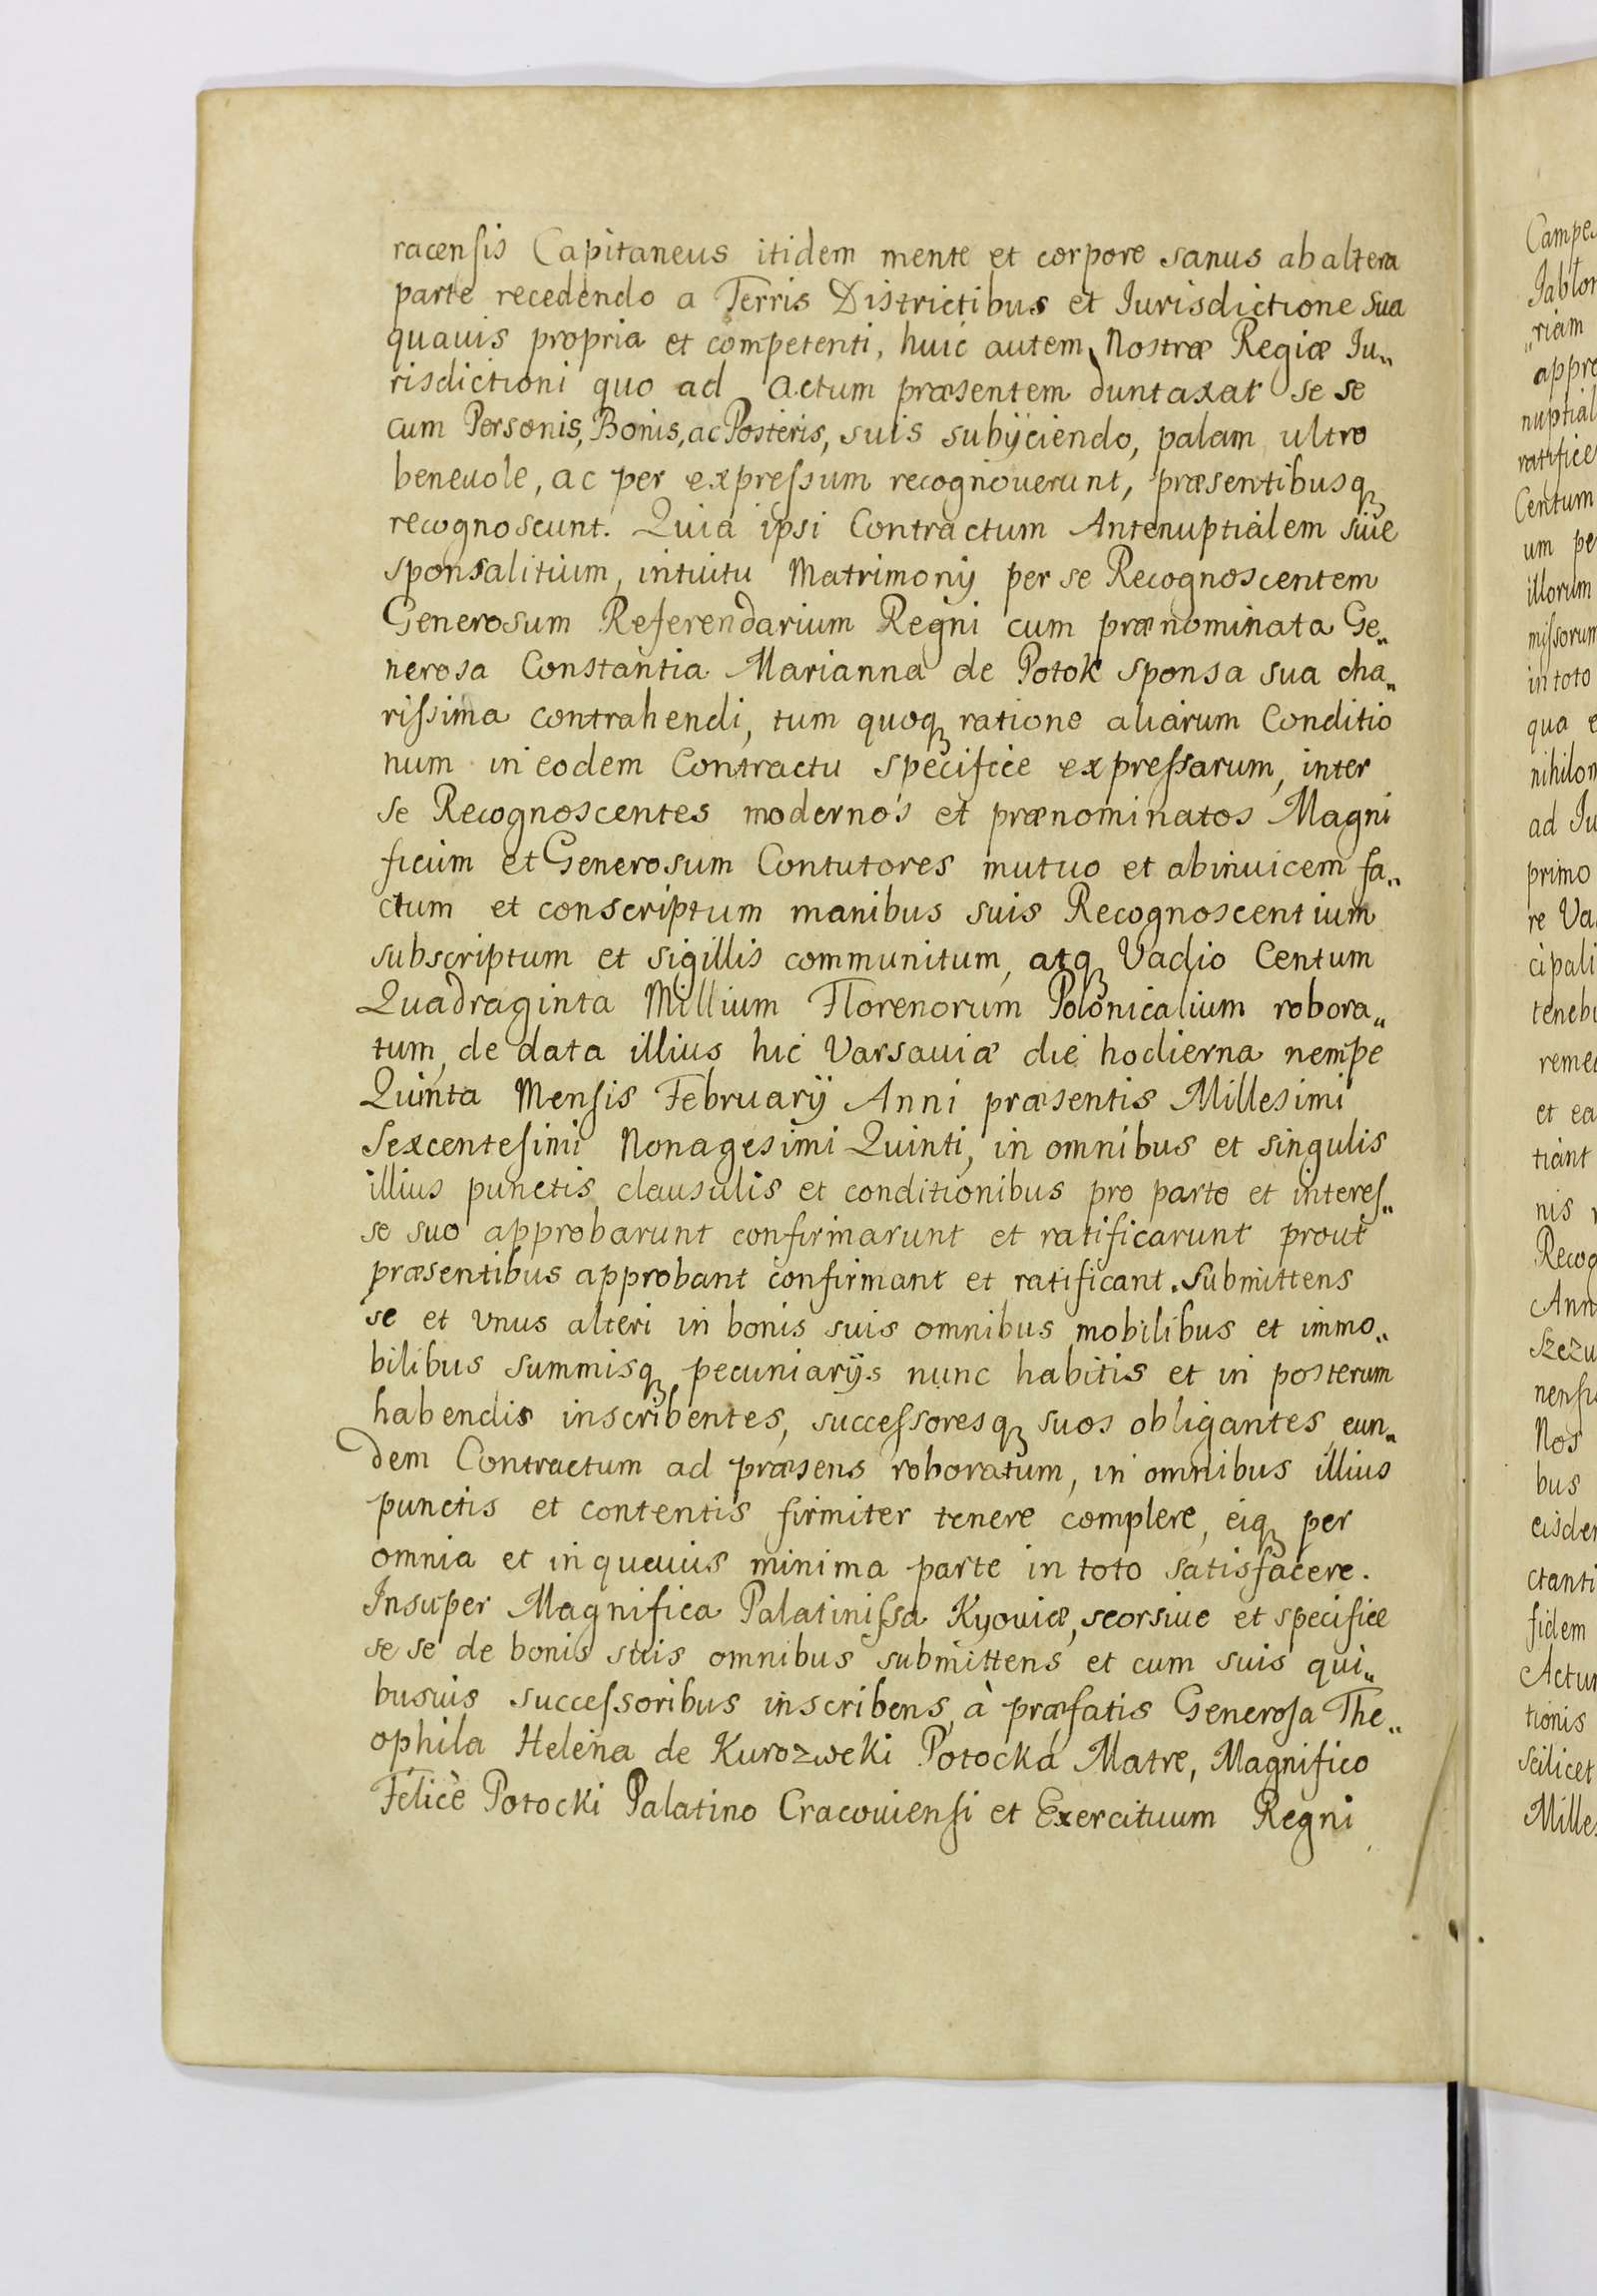 racensis Capitaneus itidem mente et corpore sanus ab altera
parte recedendo a Terris Districtibus et Iurisdictione sua
quauis propria et competenti, huic autem Nostræ Regiæ Iu„
risdictioni quo ad actum præsentem duntaxat se se
cum Personis, Bonis, ac Posteris, suis subijciendo, palam ultro
beneuole, ac per expressum recognouerunt, præsentibusq
recognoscunt. Quia ipsi Contractum Antenuptialem siue
sponsalitium, intuitu Matrimonij per se Recognoscentem
Generosum Referendarium Regni cum prænominata Ge„
nerosa Constantia Marianna de Potok sponsa sua cha„
rissima contrahendi, tum quoq ratione aliarum Conditio
num in eodem Contractu specifice expressarum, inter
se Recognoscentes modernos et prænominatos Magni
ficum et Generosum Contutores mutuo et abinuicem fa„
ctum et conscriptum manibus suis Recognoscentium
subscriptum et sigillis communitum, atq Vadio Centum
Quadraginta Millium Florenorum Polonicalium robora„
tum, de data illius hic Varsauiæ die hodierna nempe
Quinta Mensis Februarij Anni præsentis Millesimi
Sexcentesimi Nonagesimi Quinti, in omnibus et singulis
illius punctis clausulis et conditionibus pro parte et interes„
se suo approbarunt confirmarunt et ratificarunt prout
præsentibus approbant confirmant et ratificant. Submittens
se et vnus alteri in bonis suis omnibus mobilibus et immo„
bilibus summisq pecuniarijs nunc habitis et in posterum
habendis inscribentes, successoresq suos obligantes eun„
dem Contractum ad præsens roboratum, in omnibus illius
punctis et contentis firmiter tenere complere, eiq per
omnia et in quauis minima parte in toto satisfacere.
Insuper Magnifica Palatinissa Kyouiæ, seorsiue et specifice
se se de bonis suis omnibus submittens et cum suis qui„
busuis successoribus inscribens, à præfatis Generosa The„
ophila Helena de Kurozweki Potocka Matre, Magnifico
Felice Potocki Palatino Cracouiensi et Exercituum Regni
Campe
Jablon
„riam
appro
nuptial
ratifice
Centum
um pe
illorum
missorum
in toto
qua e
nihilom
ad Iu
primo
re Va
cipali
tenebi
reme
et ea
tiant
nis
Recog
Ann
Szczu
nensi
Nos
bus
eisdem
ctanti
fidem
Actum
tionis
scilicet
Milles